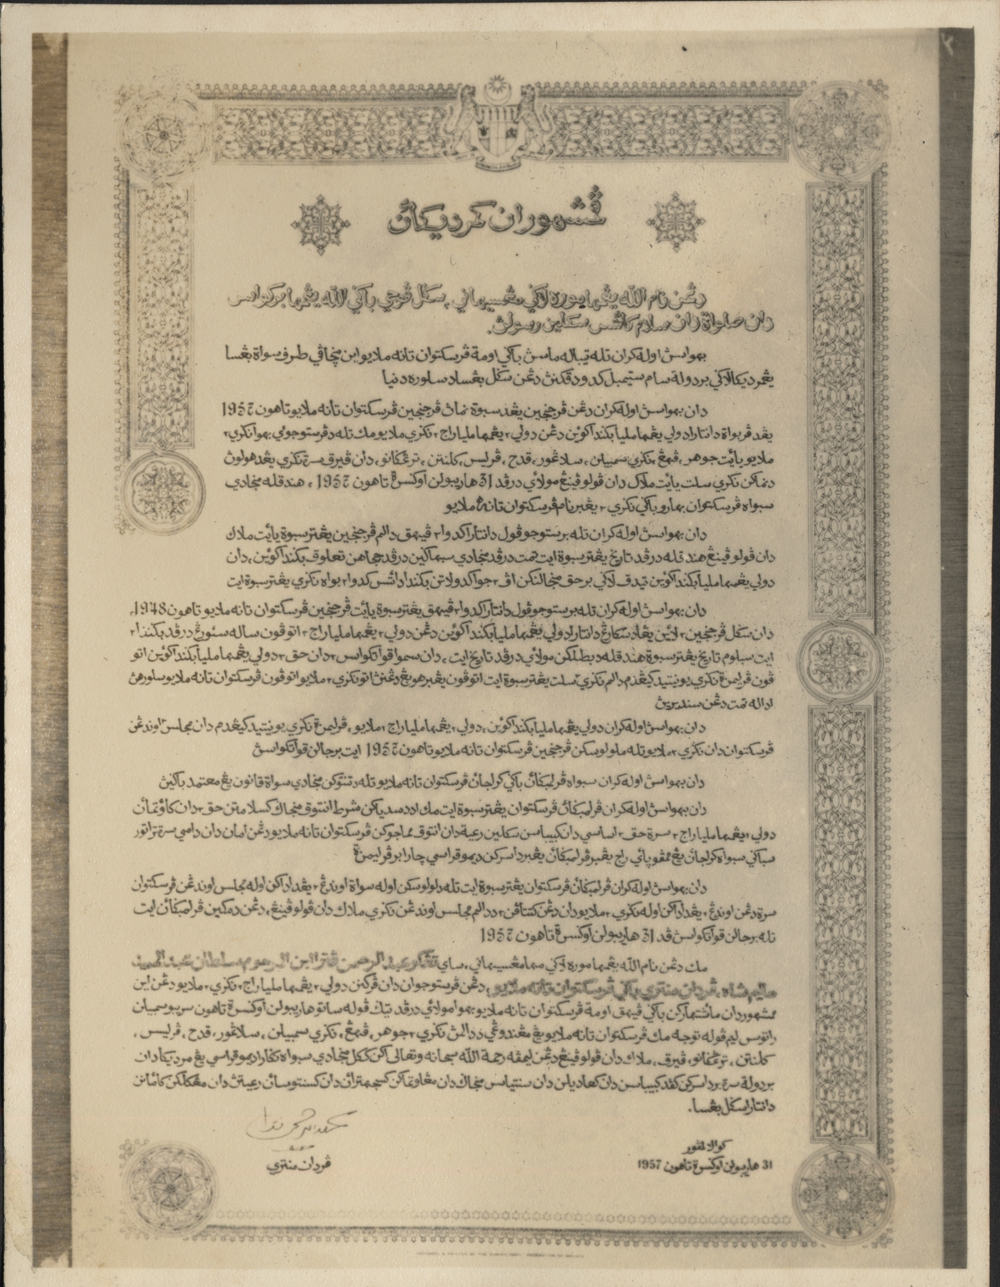 ڤشهوران کمرديکاءن
دڠن نام الله يڠمهاموره لاݢي مڠسيهاني، سݢل ڤوجي باݢي الله يڠمها برکواس
دان صلواة دان سلام کاتس سکلين رسولڽ.
بهواسڽ اوله کران تله تيباله ماسڽ باݢي اومة ڤرسکتوان تانه ملايو اين منچاڤي طرف سواة بڠسا
يڠ مرديکا لاݢي بردولة سام ستيمبل کدودقکنڽ دڠن سݢل بڠسا سلوره دنيا
دان بهواسڽ اوله کران دڠن ڤرجنجين يڠ دسبوة نماڽ ڤرجنجين ڤرسکتوان تانه ملايو تاهون 1957
يڠ دڤربواة دانتارا دولي يڠمهاملياء بݢيندا کوين دڠن دولي٢ يڠمهاملياء راج٢ نݢري ملايو مک تله دڤرستوجوءي بهوا نݢري٢
ملايو ياءيت جوهر، ڤهڠ، نݢري سمبيلن، سلاڠور، قدح، ڤرليس، کلنتن، ترڠݢانو، دان ڤيرق سرة نݢري٢ يڠ دهولوڽ
دنماکن نݢري٢ سلت ياءيت ملاک دان ڤولاو ڤينڠ مولاءي درڤد 31 هاريبولن اوݢوس تاهون 1957، هندقله منجادي
سبواه ڤرسکتوان بهارو باݢي نݢري٢ يڠ برنام ڤرسکتوان تانه ملايو
دان بهواسڽ اوله کران تله برستوجو ڤول دانتارا کدوا٢ ڤيهق دالم ڤرجنجين يڠ ترسبوة ياءيت ملاک
دان ڤولاو ڤينڠ هندقله درڤد تاريخ يڠ ترسبوة ايت تمت درڤد منجادي سبهاݢين درڤد جاجهن تعلوق بݢيندا کوين، دان
دولي يڠمهاملياء بݢيندا کوين تيدق لاݢي برحق منجالنکن اڤ٢ جوا کدولاتن بݢيندا داتس کدوا٢ بواه نݢري يڠ ترسبوة ايت
دان بهواسڽ اوله کران تله برستوجو ڤول دانتارا کدوا٢ ڤيهق يڠ ترسبوة ياءيت ڤرجنجين ڤرسکتوان تانه ملايو تاهون 1948،
دان سݢل ڤرجنجين٢ لاءين يڠ اد سکارڠ دانتارا دولي يڠمهاملياء بݢيندا کوين دڠن دولي٢ يڠمهاملياء راج٢ اتوڤون ساله سئورڠ درڤد بݢيندا٢
ايت سبلوم تاريخ يڠ ترسبوة هندقله دبطلکن مولاءي درڤد تاريخ ايت، دان سموا قوة کواس٢ دان حق٢ دولي يڠمهاملياء بݢيندا کوين اتو
ڤون ڤرليمن نݢري يونيتيد کيڠدم دالم نݢري٢ سلت يڠ ترسبوة ايت اتوڤون يڠ برهوبوڠ دڠنڽ اتو نݢري٢ ملايو اتوڤون ڤرسکتوان تانه ملايو سلوروهڽ
اداله تمت دڠن سنديريڽ
دان بهواسڽ اوله کران دولي يڠمهاملياء بݢيندا کوين، دولي٢ يڠمهاملياء راج٢ ملايو، ڤرليمن نݢري يونيتيد کيڠدم دان مجلس٢ اوندڠن
ڤرسکتوان دان نݢري٢ ملايو تله ملولوسکن ڤرجنجين ڤرسکتوان تانه ملايو تاهون 1957 ايت برجالن قوة کواسڽ
دان بهواسڽ اوله کران سبواه ڤرلمبݢاءن باݢي کراجاءن ڤرسکتوان تانه ملايو تله دتنتوکن منجادي سواة قانون يڠ معتمد باݢيڽ
دان بهواسڽ اوله کران ڤرلمبݢاءن ڤرسکتوان يڠ ترسبوة ايت مک اد دسدياکن شرط انتوق منجاݢ کسلامتن حق٢ دان کأوتماءن
دولي٢ يڠمهاملياء راج٢ سرة حق٢ اساسي دان کبيبسن سکلين رعية دان انتوق مماجوکن ڤرسکتوان تانه ملايو دڠن امان دان دامي سرة تراتور
سباݢي سبواه کراجاءن يڠ ممڤوڽاءي راج يڠ برڤرلمبݢاءن يڠ برداسرکن ديموقراسي چارا برڤرليمن
دان بهواسڽ اوله کران ڤرلمبݢاءن ڤرسکتوان يڠ ترسبوة ايت تله دلولوسکن اوله سواة اوندڠ٢ يڠ داداکن اوله مجلس اوندڠن ڤرسکتوان
سرة دڠن اوندڠ٢ يڠ داداکن اوله نݢري٢ ملايو دان دڠن کتتاڤن٢ ددالم مجلس اوندڠن نݢري ملاک دان ڤولاو ڤينڠ، دڠن دمکين ڤرلمبݢاءن ايت
تله برجالن قوة کواسڽ ڤد 31 هاريبولن اوݢوس تاهون 1957
مک دڠن نام الله يڠمهاموره لاݢي مها مڠسيهاني، ساي تڠکو عبدالرحمن ڤترا ابن المرحوم سلطان عبدالحميد
حليم شاه، ڤردان منتري باݢي ڤرسکتوان تانه ملايو، دڠن ڤرستوجوان دان ڤرکنن دولي٢ يڠمهاملياء راج٢ نݢري٢ ملايو دڠن اين
ممشهورکن دان مڠاعتيهارکن باݢي ڤيهق اومة ڤرسکتوان تانه ملايو بهوا مولاءي درڤد تيݢ ڤوله ساتو هاريبولن اوݢوس تاهون سريبو سمبيلن
راتوس ليم ڤوله توجه مک ڤرسکتوان تانه ملايو يڠ مڠندوڠي ددالمڽ نݢري٢ جوهر، ڤهڠ، نݢري سمبيلن، سلاڠور، قدح، ڤرليس،
کلنتن، ترڠݢانو، ڤيرق، ملاک دان ڤولاو ڤينڠ دڠن ليمڤه رحمة الله سبحانه وتعالى اکن ککل منجادي سبواه نݢارا ديموقراسي يڠ مرديکا دان
بردولة سرة برداسرکن کڤد کبيبسن دان کعاديلن دان سنتياس منجاݢ دان مڠاوتماکن کسجهتراءن دان کسنتوساءن رعيتڽ دان مڠکلکن کأمانن
دانتارا سݢل بڠسا.
کوالا لمڤور
31 هاريبولن اوݢوس تاهون 1957
ڤردان منتري